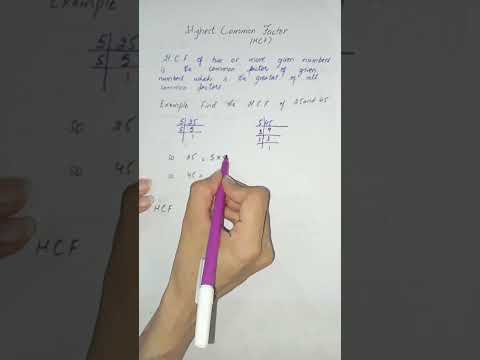 Highest Common Factor
(HCF)
H.C.F of two or more given numbers
is the common factor of given
numbers which is the greatest of all
common factors
Example Find the H.C.F of 25 and 45
5 | 25
5 | 5
1
5 | 45
3 | 9
3 | 3
1
so 25 = 5 ×
so 45 =
HCF
5 25
5 5
1
25
45
HCF